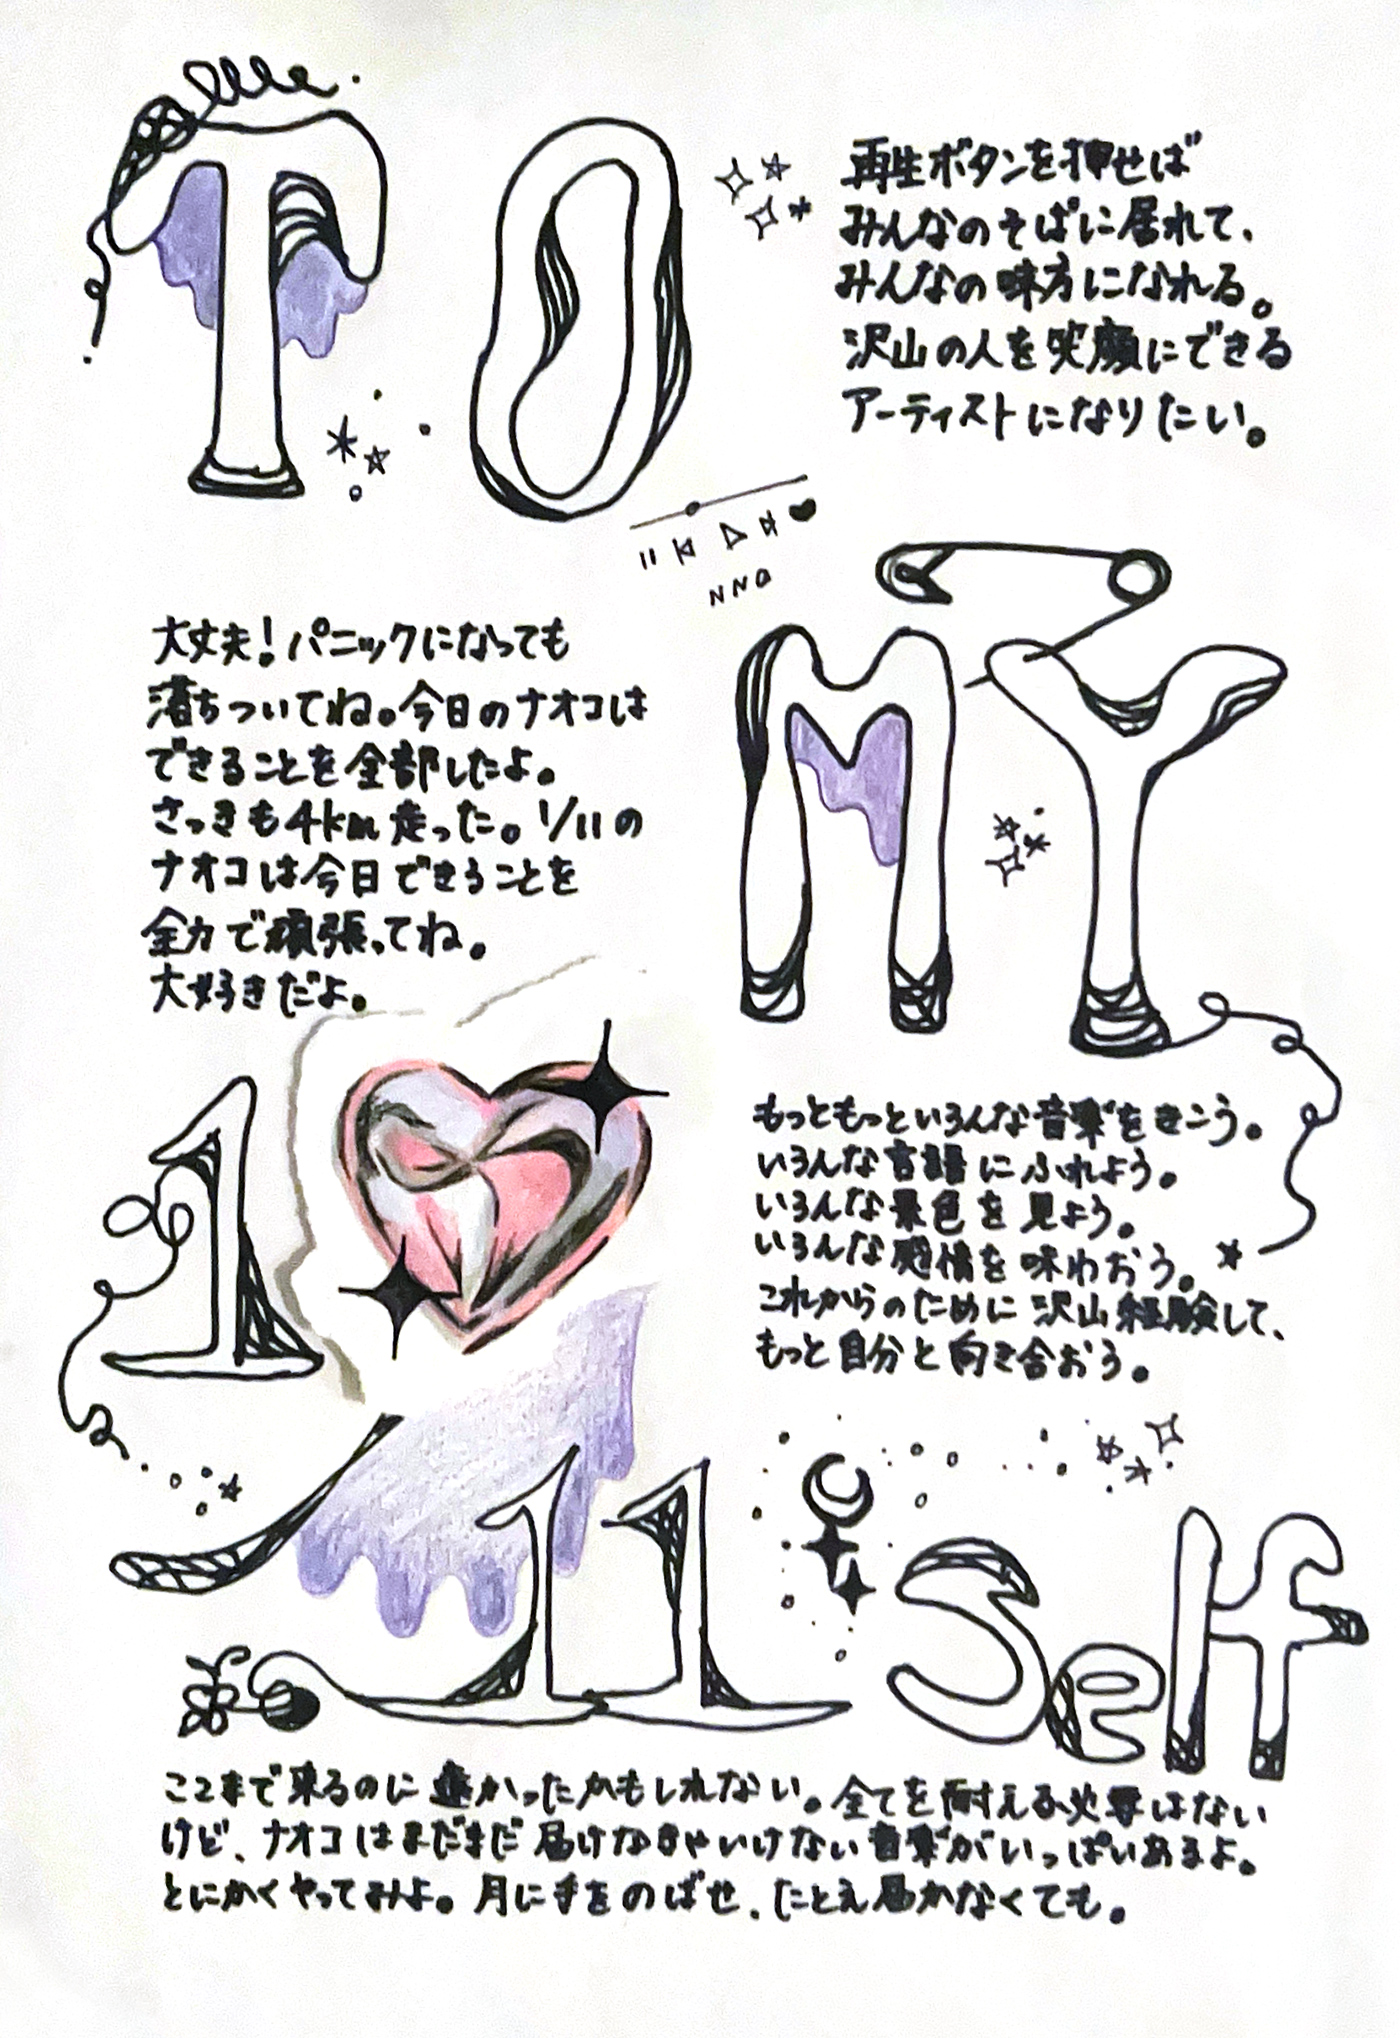 TO
再生ボタンを押せば
みんなのそばに居れて、
みんなの味方になれる。
沢山の人を笑顔にできる
アーティストになりたい。
NNA
MY
大丈夫!パニックになっても
落ちついてね。今日のナオコは
できることを全部したよ。
さっきも4km走った。1/11の
ナオコは今日できることを
全力で頑張ってね。
大好きだよ。
もっともっといろんな音楽をきこう。
いろんな言語にふれよう。
いろんな景色を見よう。
いろんな感情を味わおう。
これからのために沢山経験して、
もっと自分と向き合おう。
1
11
Self
ここまで来るのに遠かったかもしれない。全てを耐える必要はない
けど、ナオコはまだまだ届けなきゃいけない音楽がいっぱいあるよ。
とにかくやってみよ。月に手をのばせ、たとえ届かなくても。